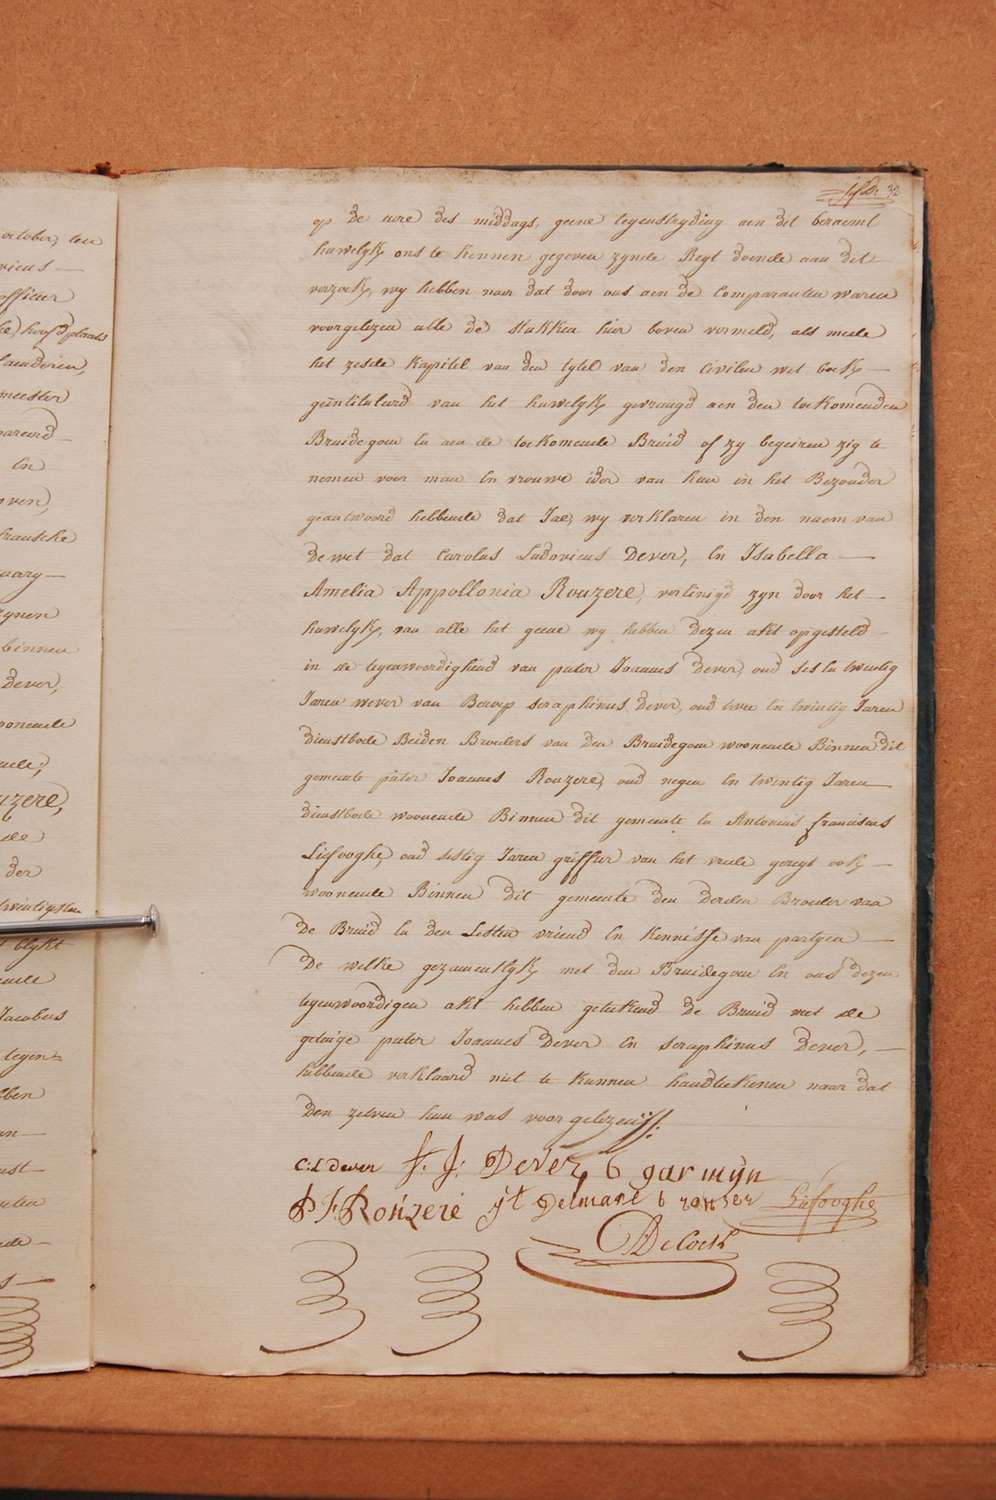 october, ten
officier
hoofdplaats
laenderen,
meester
en
fransche
uary
zynen
binnen
dever,
woonende
uzere,
de
der
twintigsten
t blykt
Jacobus
tegen=
bben
32
op de uere des middags, geene tegenstryding aen dit beraemt
huwelyk ons te kennen gegeven zynde Regt doende aan dit
verzoek, wy hebben naer dat door ons aen de Comparanten waren
voorgelezen alle de stukken hier boven vermeld, als mede
het zesde Kapitel van den tytel van den civilen wet boek
geïntituleerd van het huwelyk gevraegd aen den toekomenden
Bruidegom en aen de toekomende Bruid of zy begeiren zig te
nemen voor man en vrouwe ider van hun in het Bezonder
geantwoord hebbende dat Jae, wy verklaren in den naem van
de wet dat Carolus Ludovicus Dever, en Isabella
Amelia Appollonia Rouzere, vereenigd zyn door het
huwelyk, van alle het geene wy hebben dezen akt opgesteld
in de tegenwoordigheid van pieter Joannes Dever, oud ses en twintig
Jaren wever van Beroep seraphinus Dever, oud twee en twintig Jaren
dienstbode Beiden Broeders van den Bruidegom woonende Binnen dit
gemeente pieter Joannes Rouzere, oud negen en twintig Jaren
dienstbode woonende Binnen dit gemeente en Antonius franciscus
Liefooghe, oud sestig Jaren griffier van het vrede geregt ook
woonende Binnen dit gemeente den derden Broeder van
de Bruid en den Lesten vriend en Kennisse van partyen
De welke gezamentlyk met den Bruidegom en ons dezen
tegenwoordigen akt hebben geteekend de Bruid met de
getuige pieter Joannes Dever en seraphinus Dever,
hebbende verklaerd niet te kunnen handteekenen naer dat
den zelven hun was voorgelezen
C:L dever f. J: Dever, 6 garmÿn
P F Rouzeré Delmare 6 ronser Liefooghe
DeCock